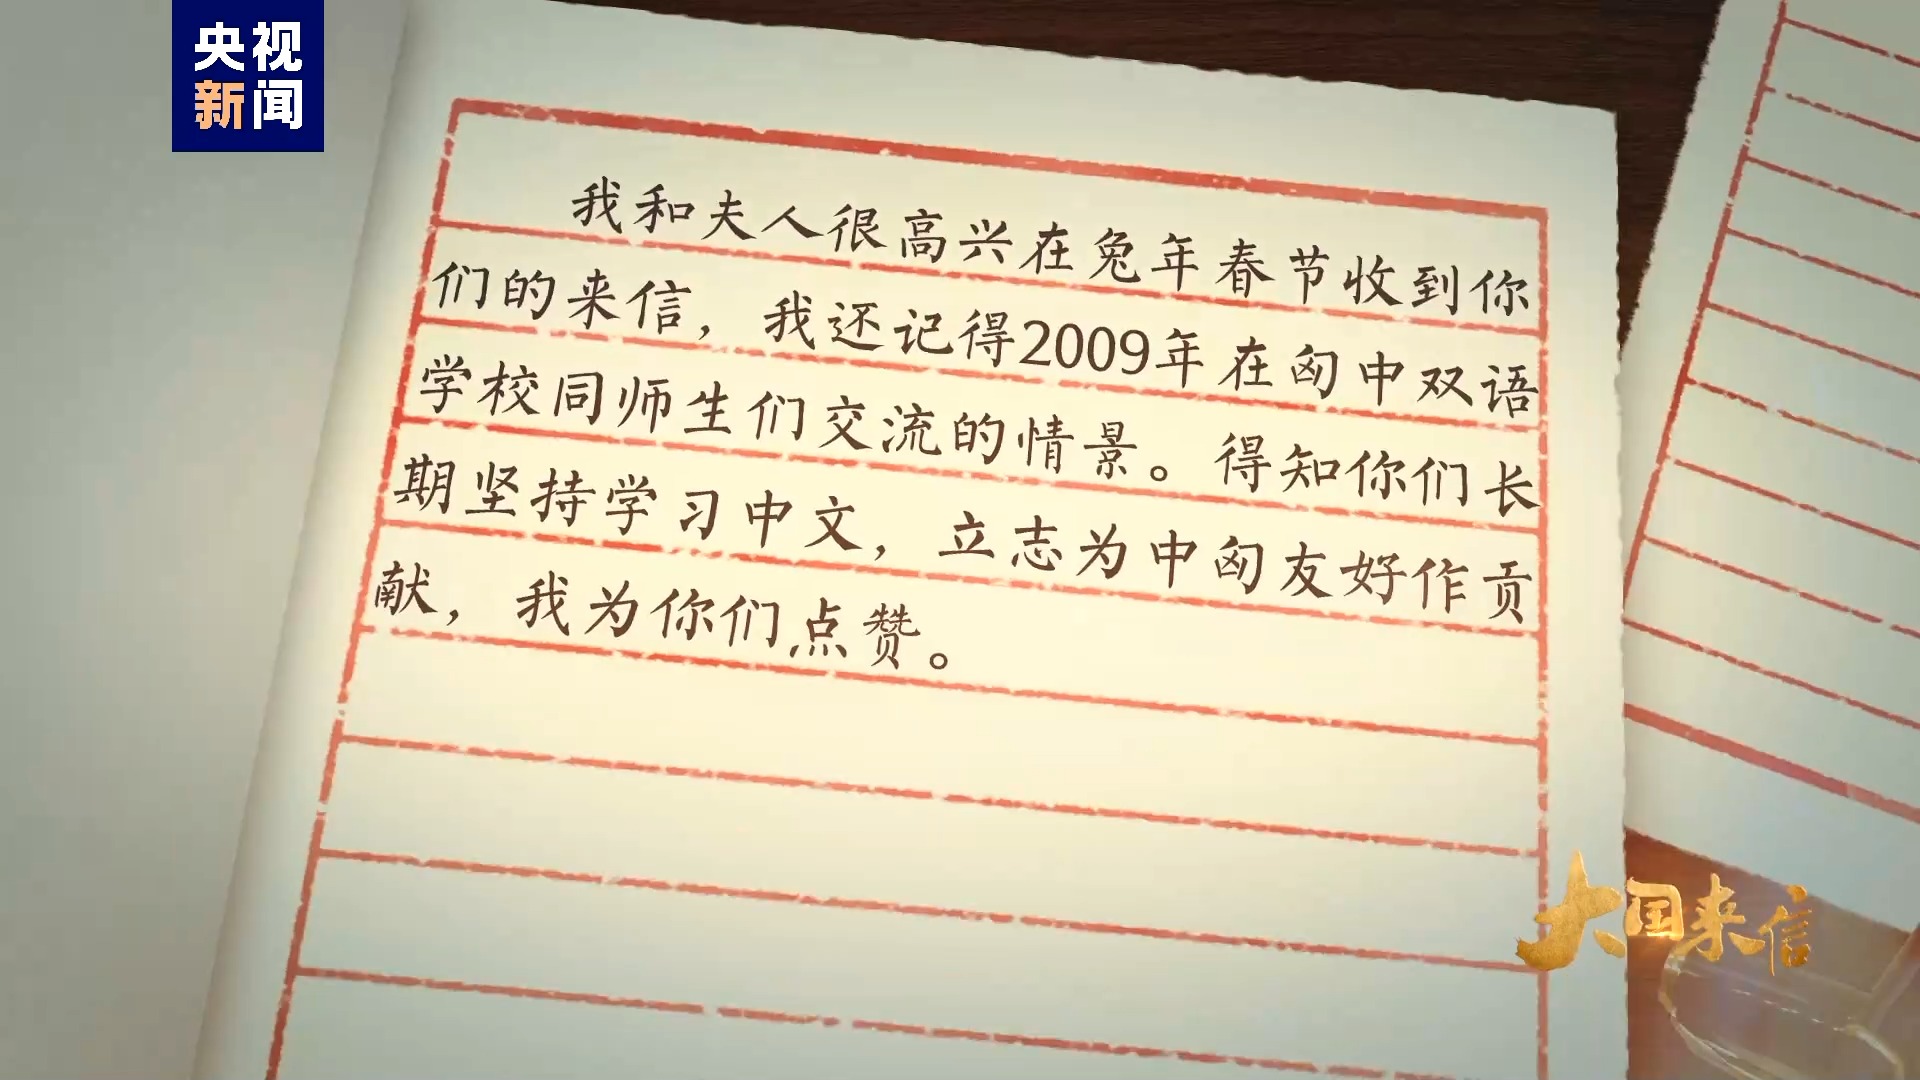 央视
新闻
我和夫人很高兴在兔年春节收到你
们的来信，我还记得2009年在匈中双语
学校同师生们交流的情景。得知你们长
期坚持学习中文，立志为中匈友好作贡
献，我为你们点赞。
大国来信